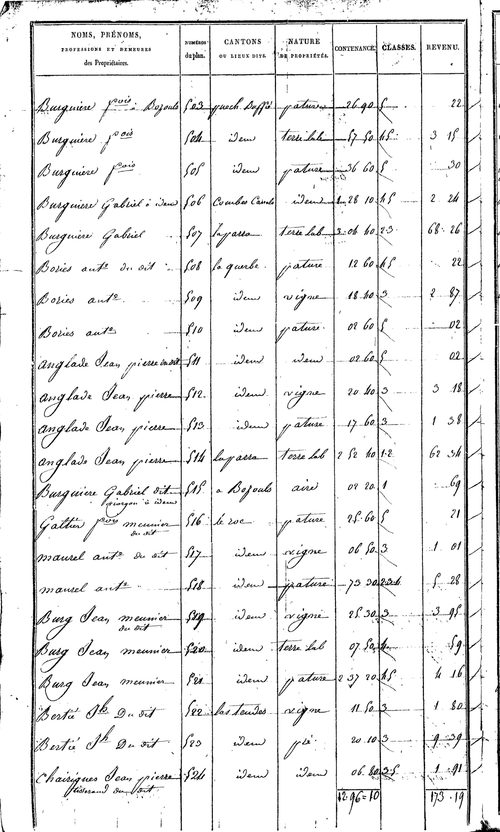 NOMS, PRÉNOMS, PROFESSIONS ET DEMEURES des Propriétaires. | NUMÉROS du plan. | CANTONS OU LIEUX DITS. | NATURE DE PROPRIÉTÉS. | CONTENANCE. | CLASSES. | REVENU.
Burguière fçois à Bozouls 503 puech Doffé pature 26 90 5 22
Burguière fçois 504 idem terre lab 57 50 45 3 15
Burguière fçois 505 idem pature 36 60 5 30
Burguiere Gabriel à idem 506 Combes Cande idem 1 28 10 45 2 24
Burguiere Gabriel 507 laparra terre lab 3 04 40 2 3 68 26
Bories ante du dit 508 la querbe pature 12 60 45 22
Bories ante 509 idem vigne 18 40 3 2 87
Bories ante 510 idem pature 02 60 5 02
anglade Jean pierre du dit 511 idem idem 02 60 5 02
anglade Jean pierre 512 idem vigne 20 40 3 3 18
anglade Jean pierre 513 idem pature 17 60 3 1 38
anglade Jean pierre 514 laparra terre lab 2 52 40 1 2 62 34
Burguiere Gabriel dit 515 a Bozouls aire 02 20 1 69
à idem
Galtier fçois meunier 516 le roc pature 25 60 5 21
du dit
maurel ante du dit 517 idem vigne 06 50 3 1 01
maurel ante 518 idem pature 73 30 2 3 4 5 28
Burg Jean meunier 519 idem vigne 25 30 3 3 95
du dit
Burg Jean meunier 520 idem terre lab 07 50 4 59
Burg Jean meunier 521 idem pature 2 37 20 45 4 16
Bertié Jh Du dit 522 las tendes vigne 11 50 3 1 80
Bertié Jh Du dit 523 idem pré 20 10 3 9 39
Chairigues Jean pierre 524 idem idem 06 80 3 5 1 91
du dit
12 96 10 173 19